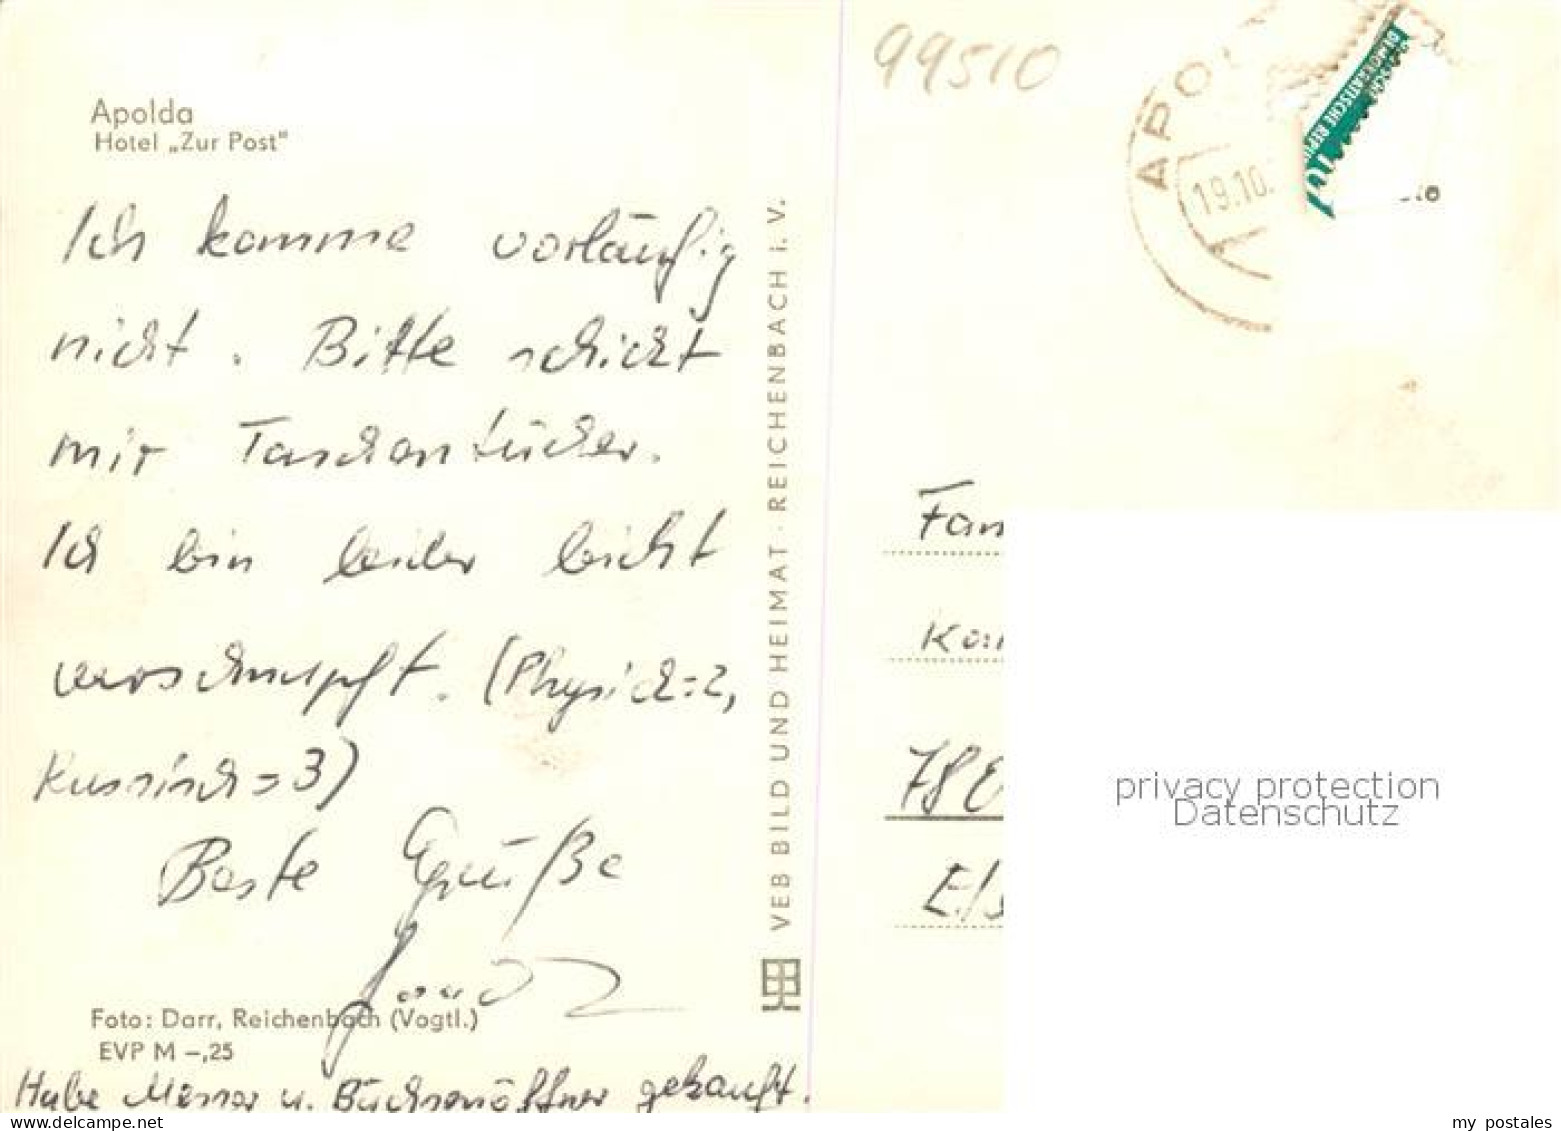 99510
Apolda
Hotel „Zur Post"
APO
19.10.
DEMOKRATISCHE REPU
10
Ich komme vorläufig
nicht. Bitte schickt
mir Taschentücher.
Ich bin leider leicht
verschnupft. (Physick=2,
Russisch=3)
Beste Grüße
Foto: Darr, Reichenbach (Vogtl.)
EVP M –,25
Habe Messer u. Büchsenöffner gekauft.
VEB BILD UND HEIMAT · REICHENBACH i. V.
Fam
Kar
E/s
privacy protection
Datenschutz
www.delcampe.net
my_postales